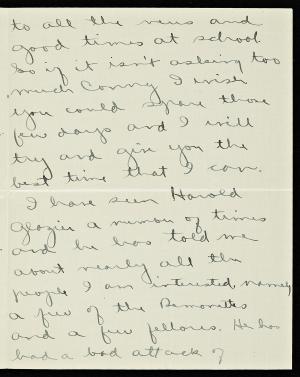 to all the news and
good times at school
So if it isn't asking too
much Conny I wish
you could spare those
few days and I will
try and give you the
best time that I can.
I have seen Harold
Glazier a number of times
and he has told me
about nearly all the
people I am interested, namely
a few of the Demonites
and a few fellows. He has
had a bad attack of